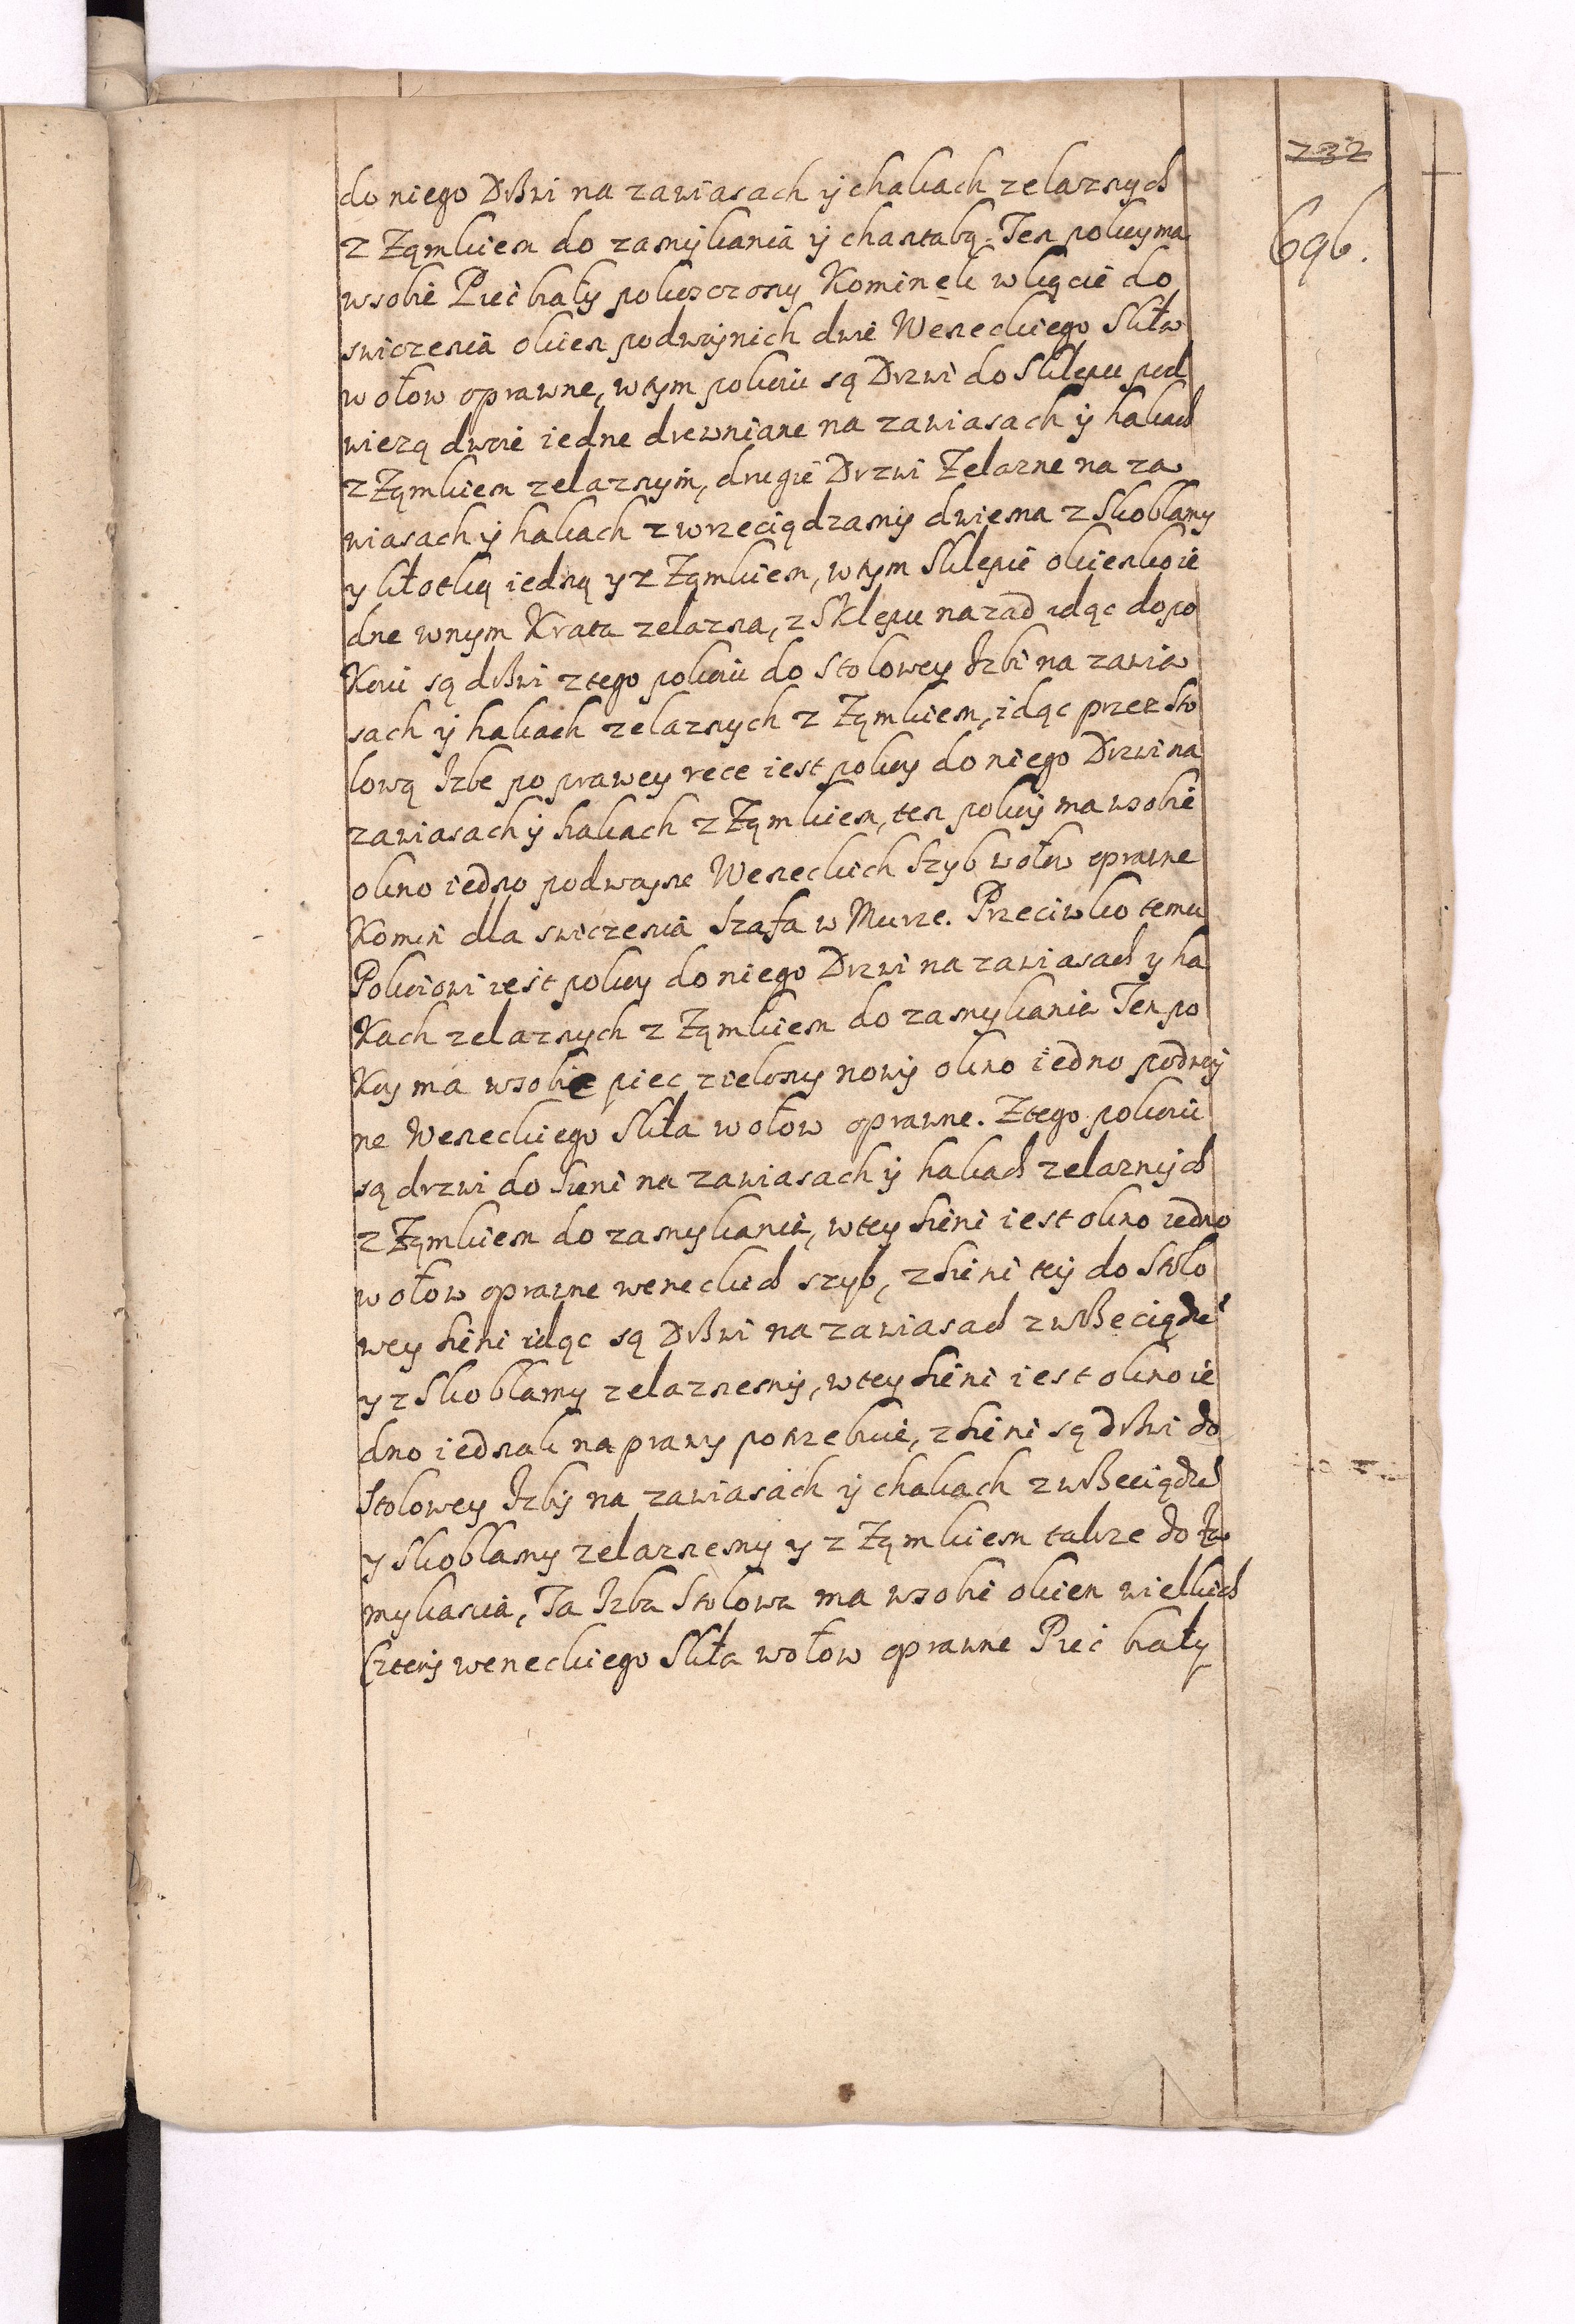 232
696.
do niego Drzwi na zawiasach ÿ chakach zelaznych
z Ząmkiem do zamÿkania ÿ chantabą. Ten pokuy ma
wsobie Piec biały pokoszczony Kominek w kącie do
swiczenia okien podwojnich dwie Weneckiego Skła
w ołow oprawne, w tym pokoiu są Drzwi do Sklepu pod
wiezą dwoie iedne drewniane na zawiasach ÿ hakach
z Ząmkiem zelaznÿm, drugie Drzwi Zelazne na za
wiasach ÿ hakach z wrzeciądzamÿ dwiema z Skoblamy
y kłotką iedną y z Ząmkiem, w tym Sklepie okienko ie
dne wnym Krata zelazna, z Sklepu nazad idąc do po
Koiu są drzwi z tego pokoiu do Stolowey Izbi na zawia
sach ÿ hakach zelaznych z Ząmkiem, idąc przez Sto
lową Izbe po prawey rece iest pokoy do niego Drzwi na
zawiasach ÿ hakach z Ząmkiem, ten pokoÿ ma wsobie
okno iedno podwoyne Weneckich Szyb w ołow oprawne
Komin dla swiczenia Szafa w Murze. Przeciwko temu
Pokoiowi iest pokoy do niego Drzwi na zawiasach y ha
Kach zelaznych z Ząmkiem do zamykania Ten po
Koy ma wsobie piec zielony nowÿ okno iedno podwoÿ
ne Weneckiego Skła w ołow oprawne. Z tego pokoiu
są drzwi do Sieni na zawiasach ÿ hakach zelaznÿch
z Ząmkiem do zamykania, w tey Sieni iest okno iedno
w ołow oprawne weneckich szyb, z Sieni teÿ do Stolo
wey Sieni idąc są Drzwi na zawiasach z wrzeciądze
y z Skoblamy zelaznemÿ, w tey Sieni iest okno ie
dno iednak naprawy potrzebuie, z Sieni są drzwi do
Stolowey Izbÿ na zawiasach ÿ chakach z wrzeciądze
y Skoblamy zelaznemy y z Ząmkiem takze do Za
mykania, Ta Izba Stolowa ma wsobie okien wielkich
Czterÿ weneckiego Skła w ołow oprawne Piec biały